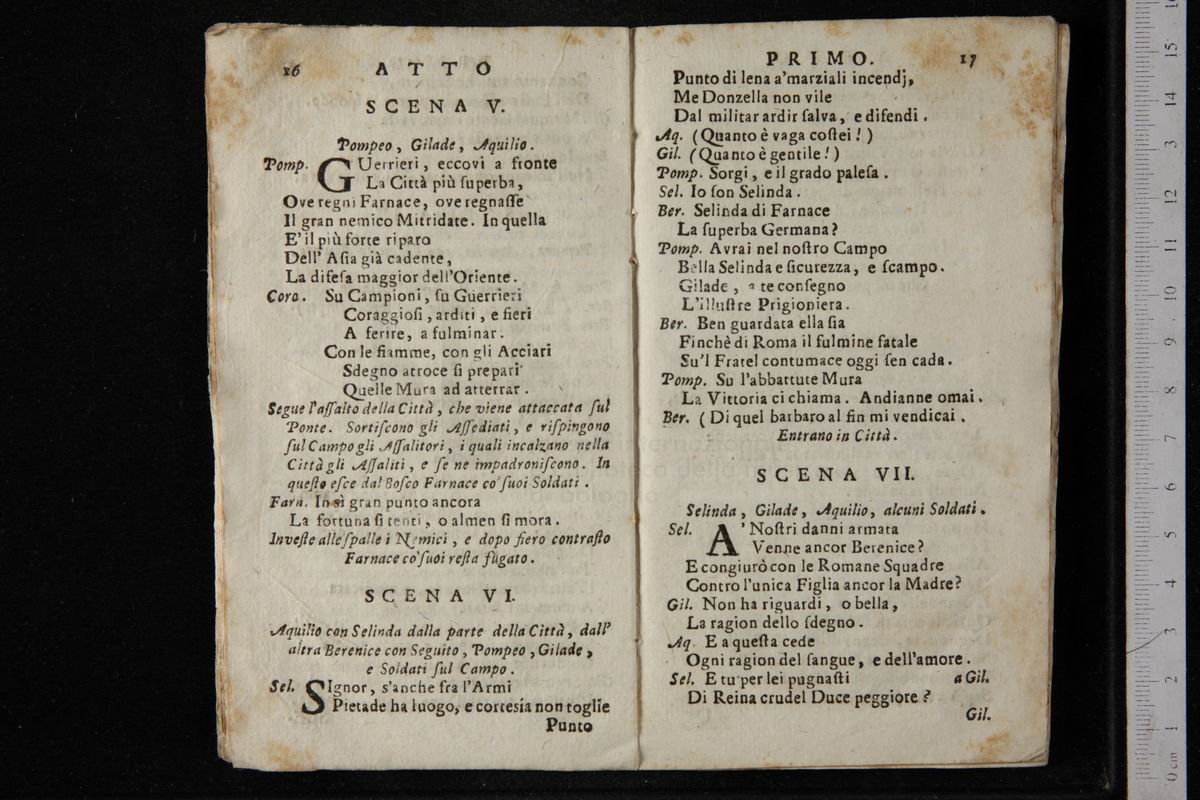 16 ATTO
SCENA V.
Pompeo, Gilade, Aquilio.
Pomp. GUerrieri, eccovi a fronte
La Città più ſuperba,
Ove regni Farnace, ove regnaſſe
Il gran nemico Mitridate. In quella
E' il più forte riparo
Dell' Aſia già cadente,
La difeſa maggior dell'Oriente.
Coro. Su Campioni, ſu Guerrieri
Coraggioſi, arditi, e fieri
A ferire, a fulminar.
Con le fiamme, con gli Acciari
Sdegno atroce ſi prepari
Quelle Mura ad atterrar.
Segue l'aſſalto della Città, che viene attaccata ſul
Ponte. Sortiſcono gli Aſſediati, e riſpingono
ſul Campo gli Aſſalitori, i quali incalzano nella
Città gli Aſſaliti, e ſe ne impadroniſcono. In
queſto eſce dal Boſco Farnace co' ſuoi Soldati.
Farn. In sì gran punto ancora
La fortuna ſi tenti, o almen ſi mora.
Inveſte alle ſpalle i Nemici, e dopo fiero contraſto
Farnace co' ſuoi reſta fugato.
SCENA VI.
Aquilio con Selinda dalla parte della Città, dall'
altra Berenice con Seguito, Pompeo, Gilade,
e Soldati ſul Campo.
Sel. SIgnor, s'anche fra l'Armi
Pietade ha luogo, e cortesía non toglie
Punto
PRIMO. 17
Punto di lena a'marziali incendj,
Me Donzella non vile
Dal militar ardir ſalva, e difendi.
Aq. (Quanto è vaga coſtei!)
Gil. (Quanto è gentile!)
Pomp. Sorgi, e il grado paleſa.
Sel. Io ſon Selinda.
Ber. Selinda di Farnace
La ſuperba Germana?
Pomp. Avrai nel noſtro Campo
Bella Selinda e ſicurezza, e ſcampo.
Gilade, a te conſegno
L'illuſtre Prigioniera.
Ber. Ben guardata ella ſia
Finchè di Roma il fulmine fatale
Su'l Fratel contumace oggi ſen cada.
Pomp. Su l'abbattute Mura
La Vittoria ci chiama. Andianne omai.
Ber. (Di quel barbaro al fin mi vendicai.
Entrano in Città.
SCENA VII.
Selinda, Gilade, Aquilio, alcuni Soldati.
Sel. A' Noſtri danni armata
Venne ancor Berenice?
E congiurò con le Romane Squadre
Contro l'unica Figlia ancor la Madre?
Gil. Non ha riguardi, o bella,
La ragion dello ſdegno.
Aq. E a queſta cede
Ogni ragion del ſangue, e dell'amore.
Sel. E tu per lei pugnaſti a Gil.
Di Reina crudel Duce peggiore?
Gil.